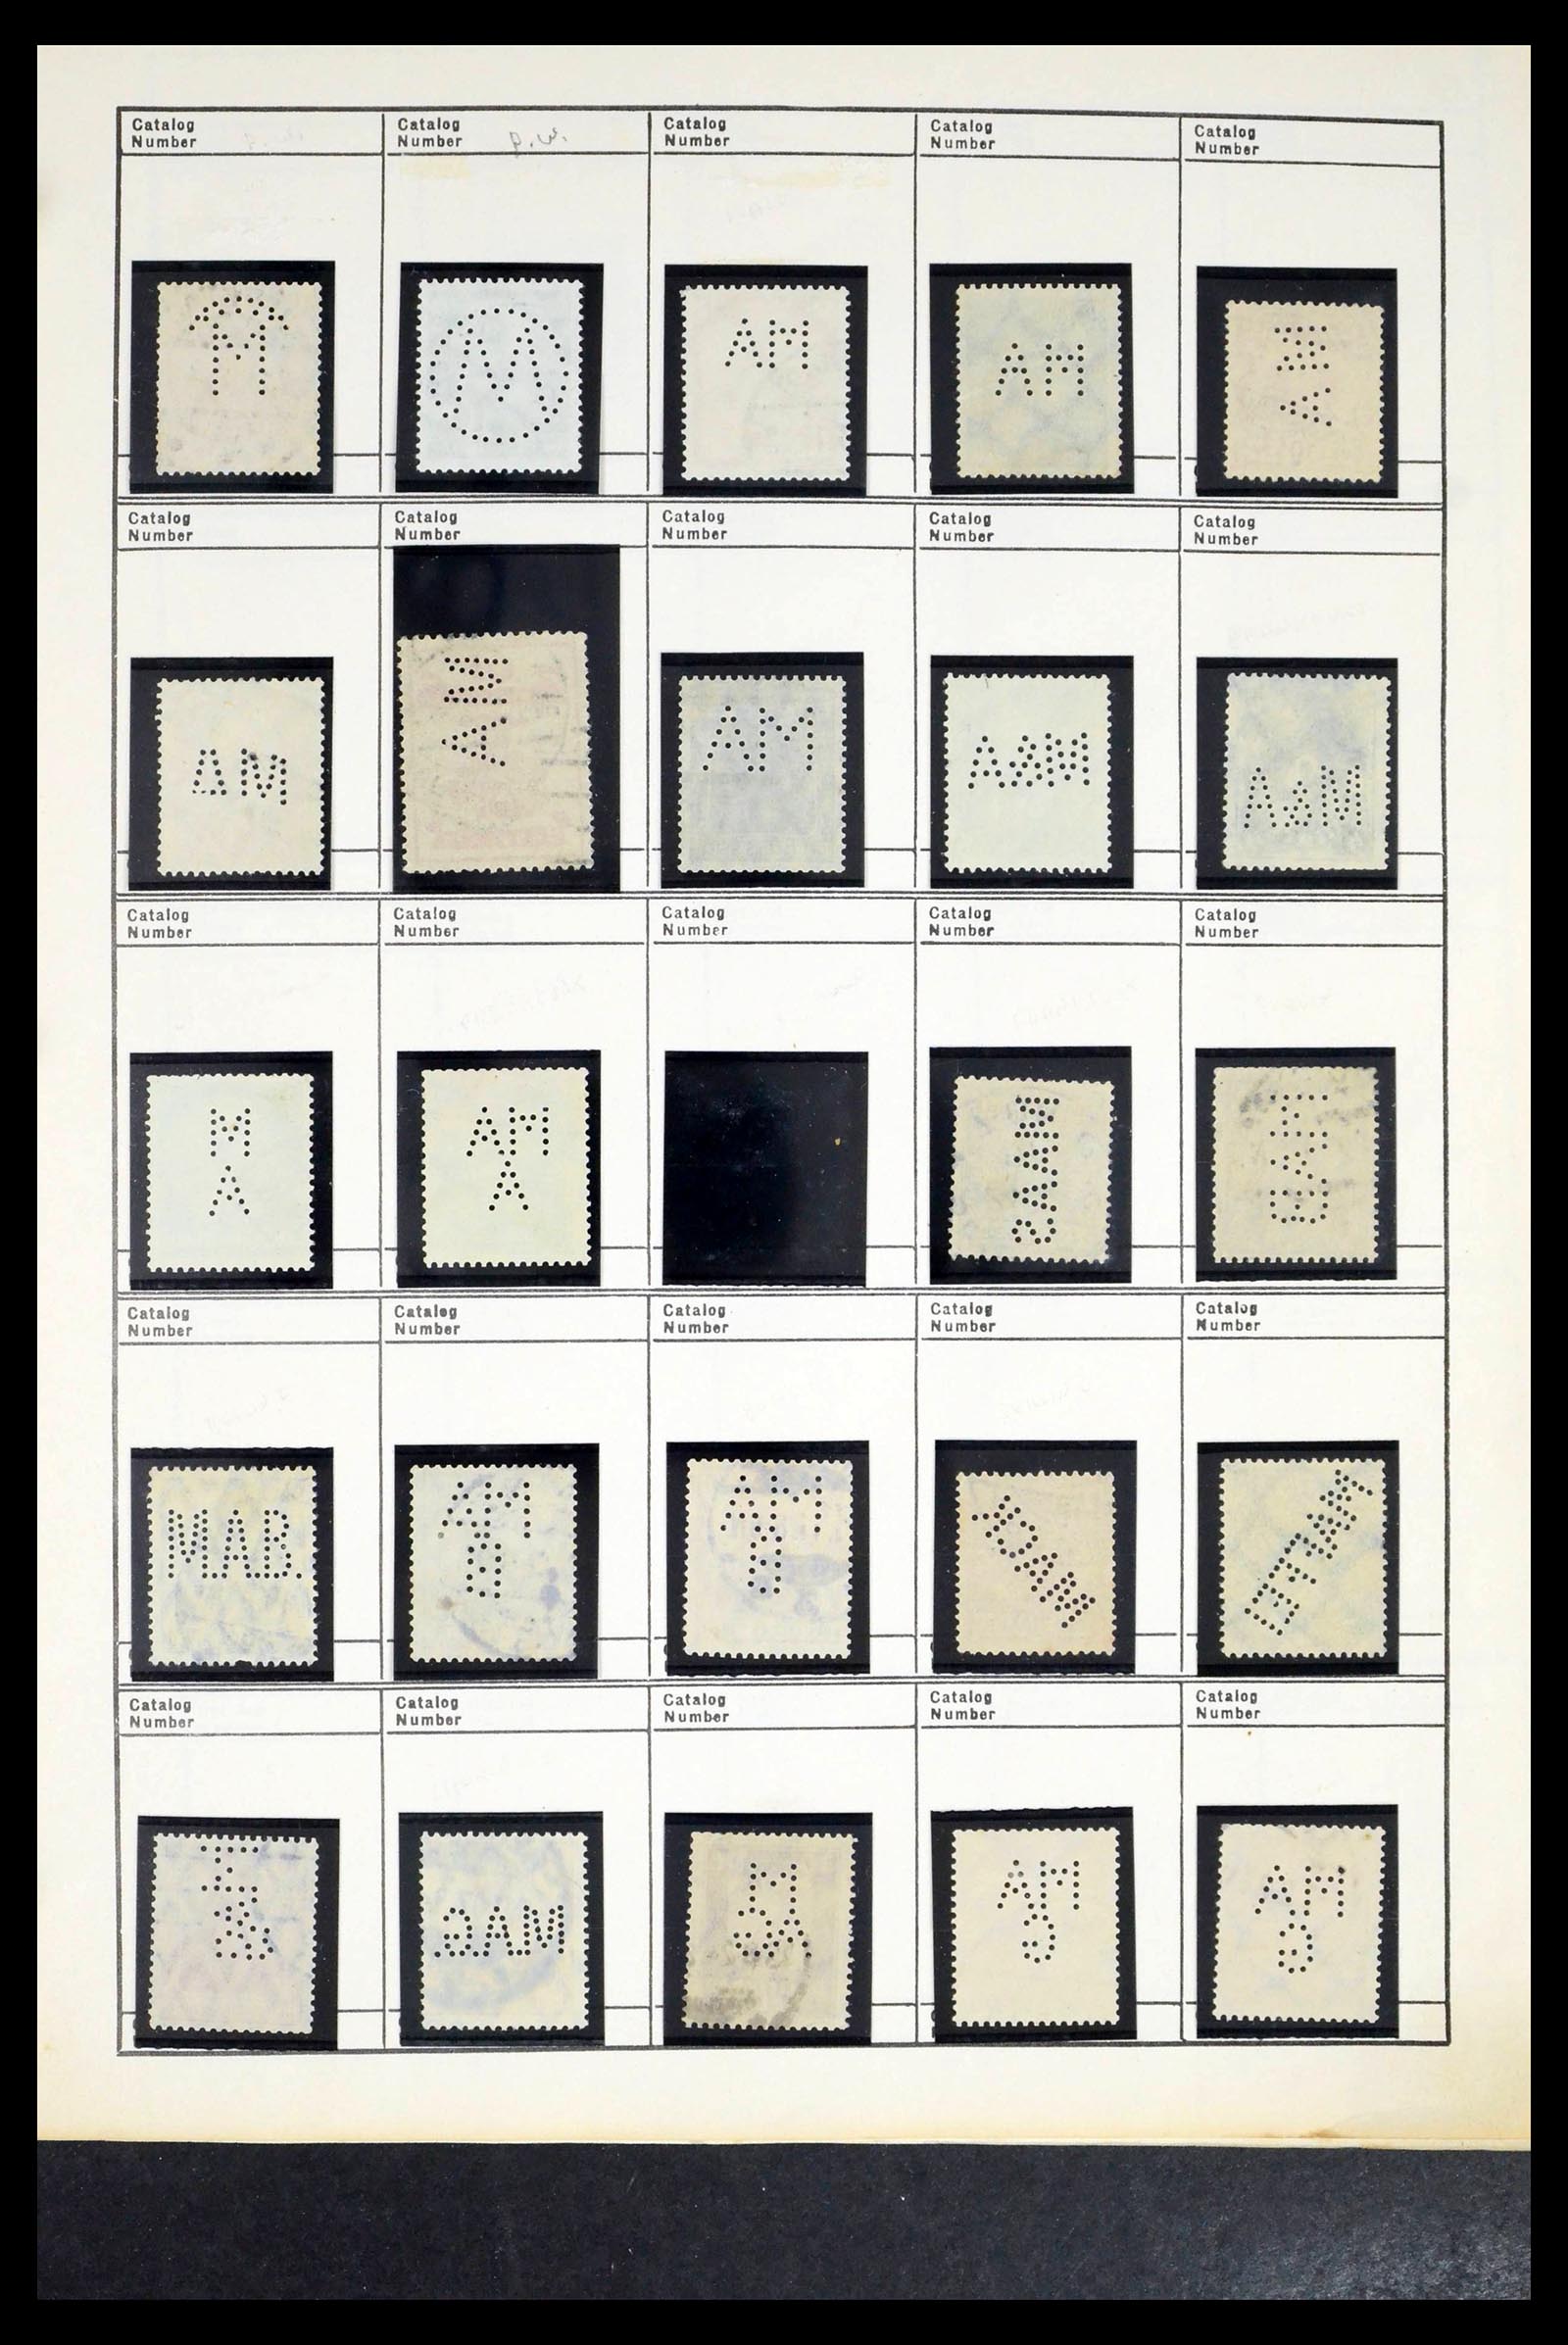 Catalog
Number
Catalog
Number
Catalog
Number
Catalog
Number
Catalog
Number
M
M
AM
AM
AM
Catalog
Number
Catalog
Number
Catalog
Number
Catalog
Number
Catalog
Number
AM
AM
AM
A&M
A&M
Catalog
Number
Catalog
Number
Catalog
Number
Catalog
Number
Catalog
Number
M
A
AM
A
MAAS
Catalog
Number
Catalog
Number
Catalog
Number
Catalog
Number
Catalog
Number
M.A.B.
AM
B
AM
H
Catalog
Number
Catalog
Number
Catalog
Number
Catalog
Number
Catalog
Number
MAG
AM
G
AM
G